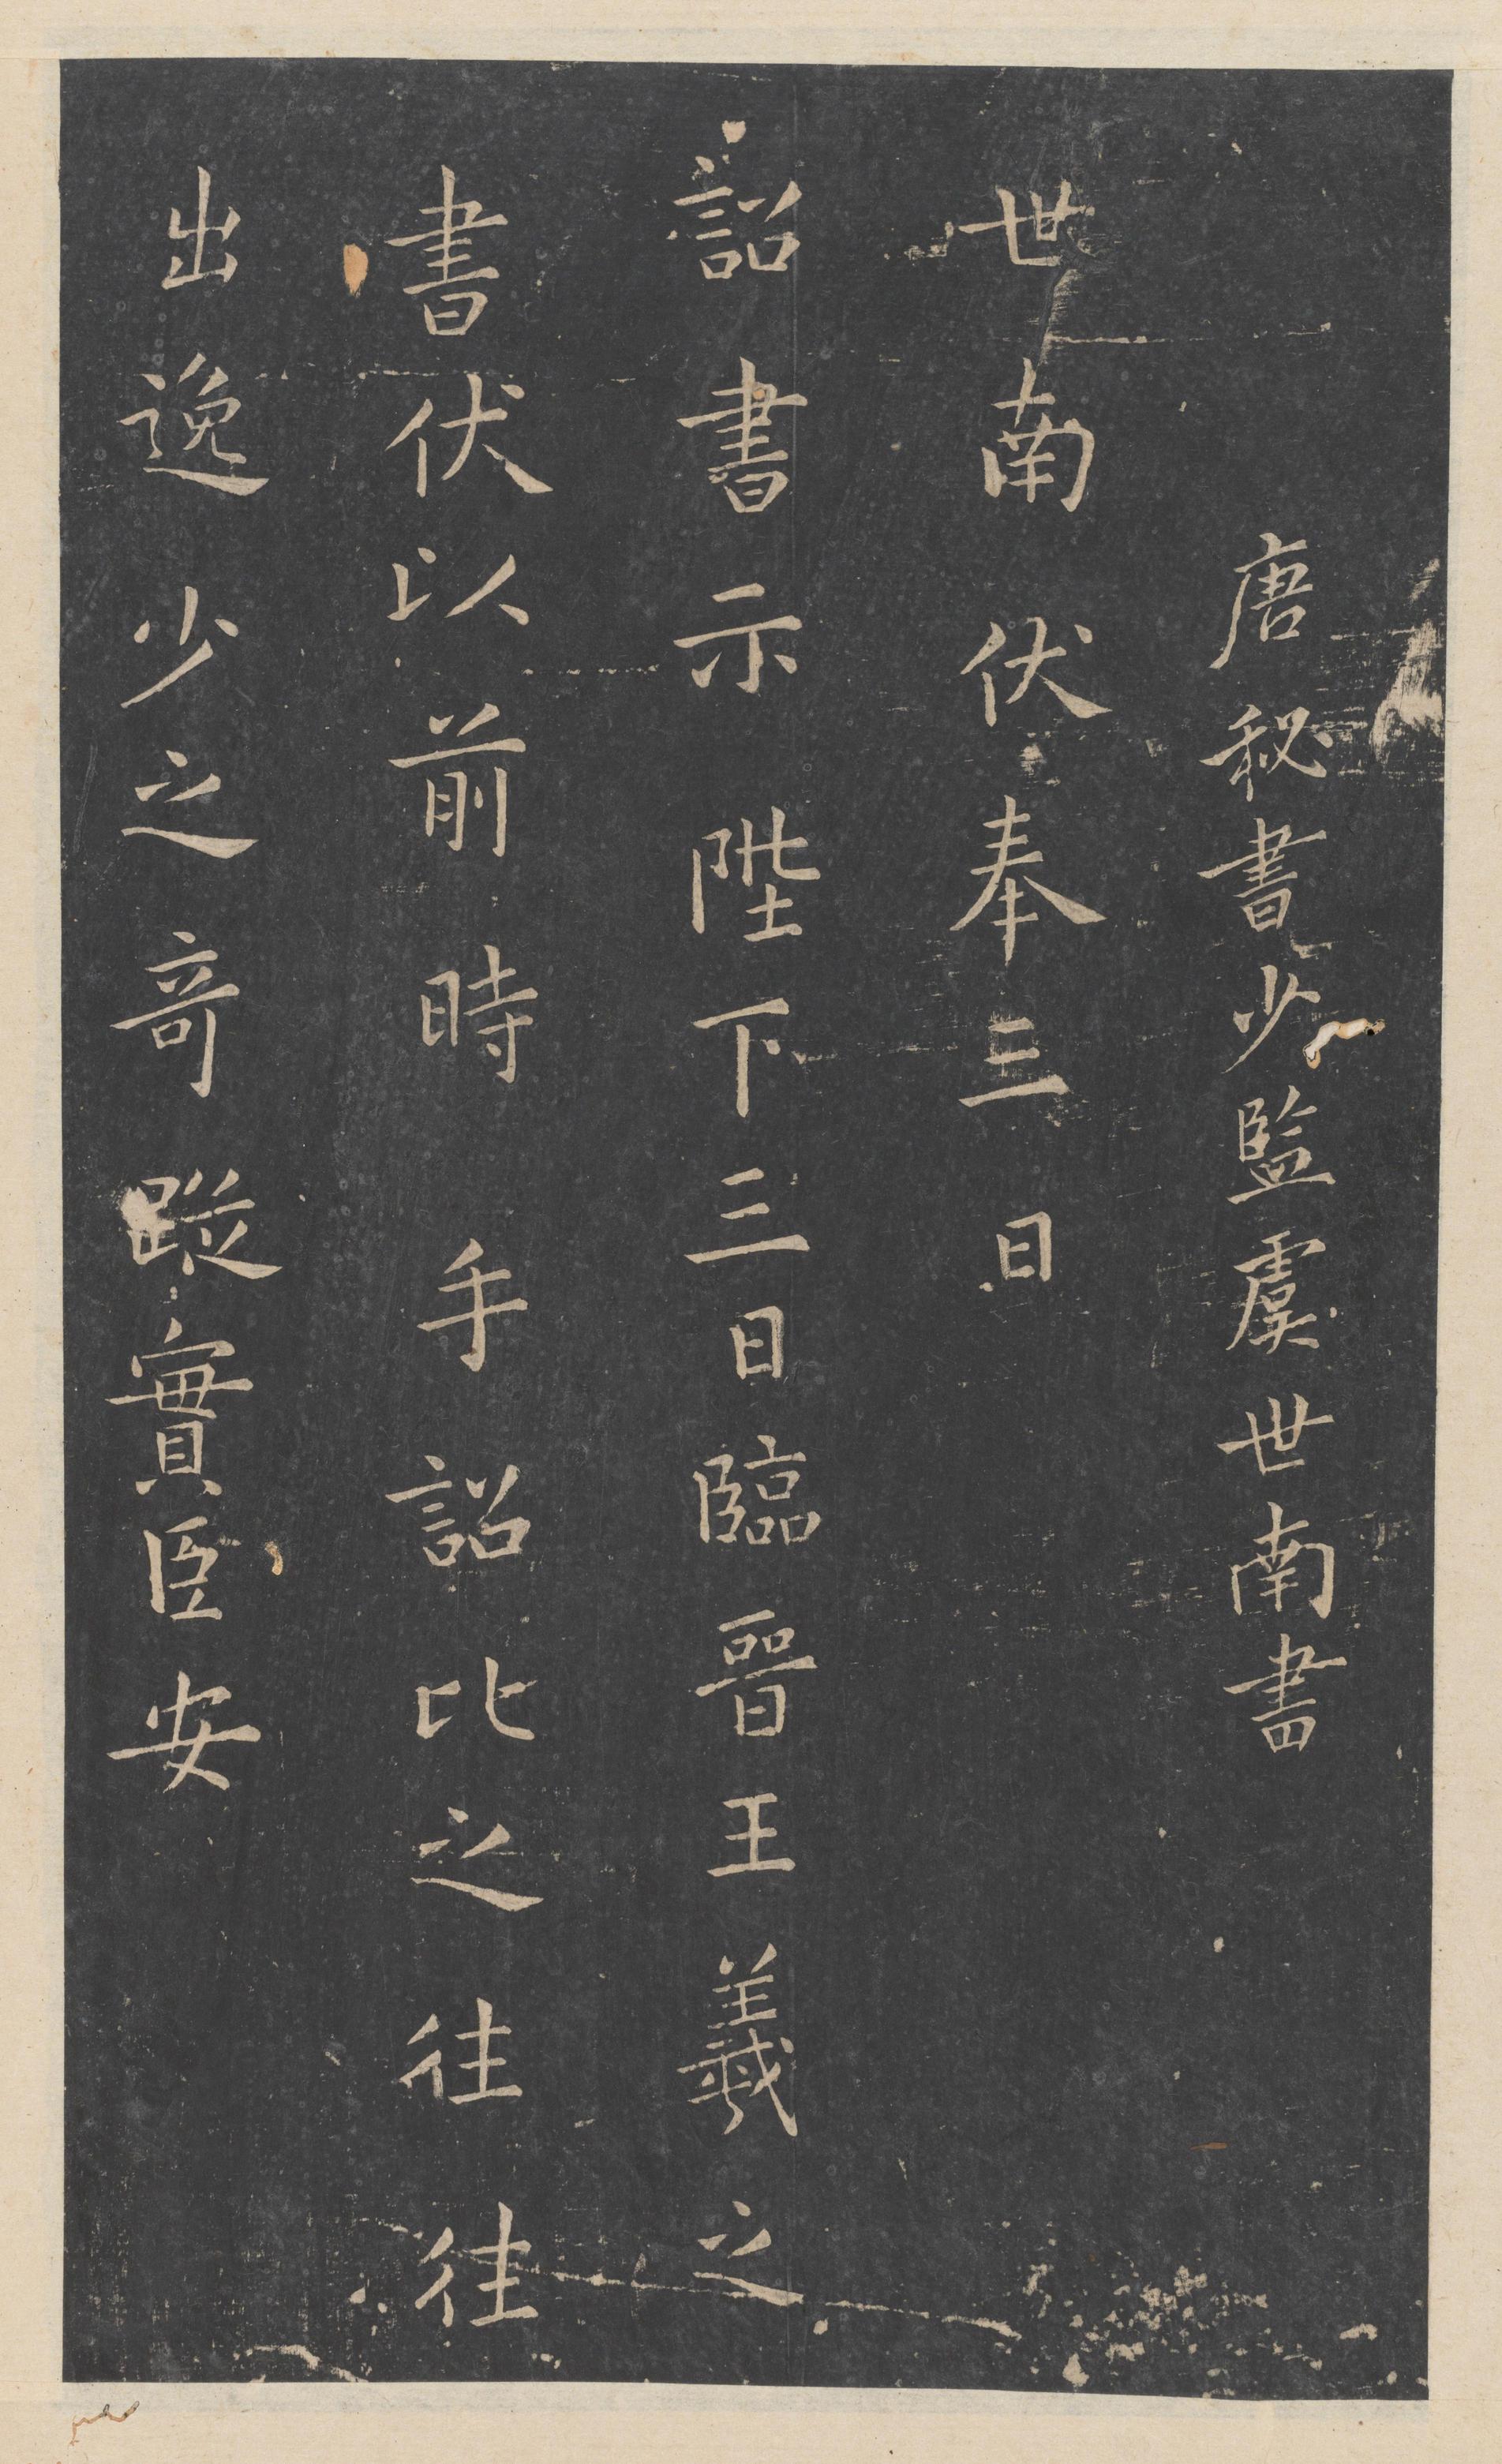 唐秘書少監虞世南書
世南伏奉三日
詔書示陛下三日臨晉王羲之
書伏以前時手詔比之往往
出逸少之奇蹤實臣安